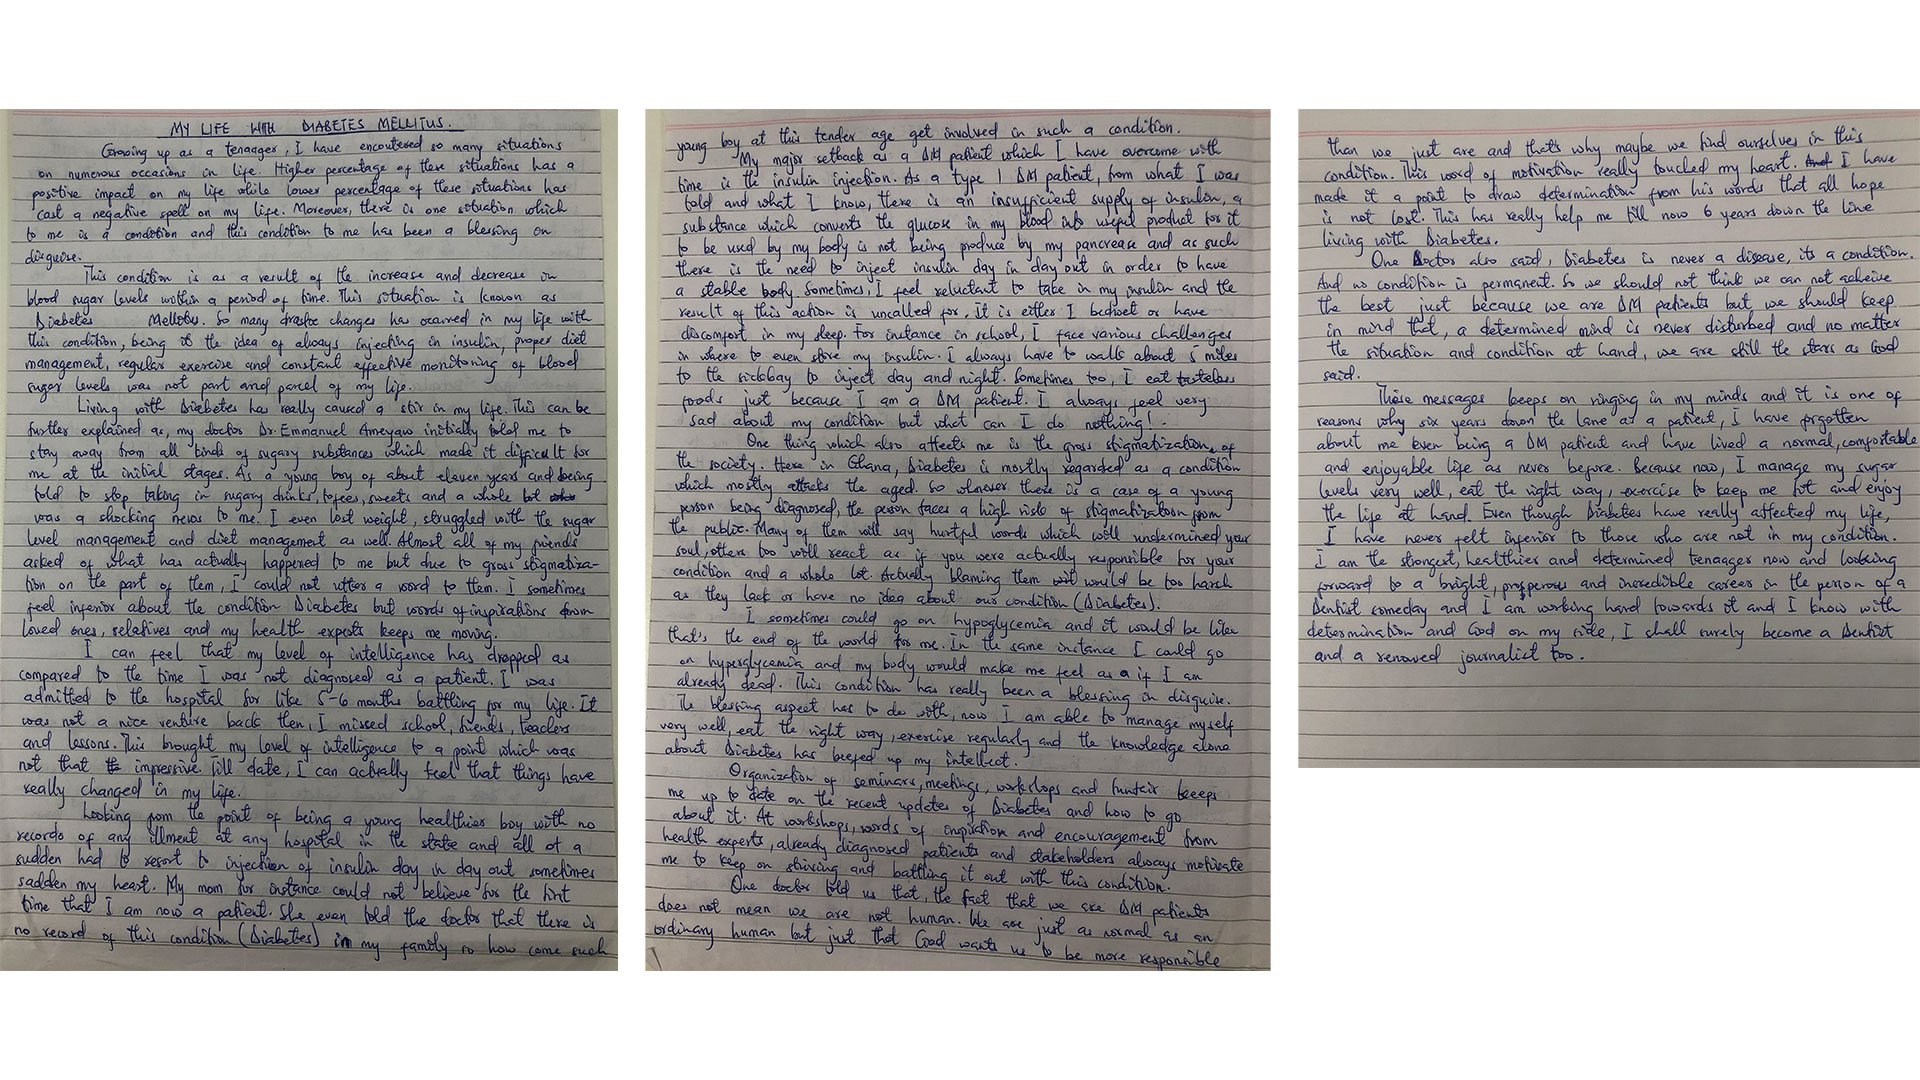 MY LIFE WITH DIABETES MELLITUS.
Growing up as a tenaager, I have encoutered so many situations
on numerous occasions in life. Higher percentage of these situations has a
positive impact on my life while lower percentage of these situations has
cast a negative spell on my life. Moreover, there is one situation which
to me is a condition and this condition to me has been a blessing on
disguise.
This condition is as a result of the increase and decrease in
blood sugar levels within a period of time. This situation is known as
Diabetes Mellotus. So many drastic changes has occurred in my life with
this condition, being it the idea of always injecting in insulin, proper diet
management, regular exercise and constant effective monitoring of blood
sugar levels was not part and parcel of my life.
Living with Diabetes has really caused a stir in my life. This can be
further explained as, my doctor Dr. Emmanuel Ameyaw initially told me to
stay away from all kinds of sugary substances which made it difficult for
me at the initial stages. As a young boy of about eleven years and being
told to stop taking in sugary drinks, tofees, sweets and a whole lot
was a shocking news to me. I even lost weight, struggled with the sugar
level management and diet management as well. Almost all of my friends
asked of what has actually happened to me but due to gross stigmatiza-
tion on the part of them, I could not utter a word to them. I sometimes
feel inferior about the condition Diabetes but words of inspirations from
loved ones, relatives and my health experts keeps me moving.
I can feel that my level of intelligence has dropped as
compared to the time I was not diagnosed as a patient. I was
admitted to the hospital for like 5-6 months battling for my life. It
was not a nice venture back then, I missed school, friends, teachers
and lessons. This brought my level of intelligence to a point which was
not that impressive. Till date, I can actually feel that things have
really changed in my life.
Looking from the point of being a young healthier boy with no
records of any illment at any hospital in the state and all of a
sudden had to resort to injection of insulin day in day out sometimes
sadden my heart. My mom for instance could not believe for the first
time that I am now a patient. She even told the doctor that there is
no record of this condition (Diabetes) in my family so how come such
young boy at this tender age get involved in such a condition.
My major setback as a DM patient which I have overcome with
time is the insulin injection. As a type 1 DM patient, from what I was
told and what I know, there is an insufficient supply of insulin, a
substance which converts the glucose in my blood into useful product for it
to be used by my body is not being produce by my pancrease and as such
there is the need to inject insulin day in day out in order to have
a stable body. Sometimes, I feel reluctant to take in my insulin and the
result of this action is uncalled for. It is either I bedwet or have
discomfort in my sleep. For instance in school, I face various challenges
in where to even store my insulin. I always have to walk about 5 miles
to the sickbay to inject day and night. Sometimes too, I eat tasteless
foods just because I am a DM patient. I always feel very
sad about my condition but what can I do nothing!.
One thing which also affects me is the gross stigmatization of
the society. Here in Ghana, Diabetes is mostly regarded as a condition
which mostly attacks the aged. So whenever there is a case of a young
person being diagnosed, the person faces a high risk of stigmatization from
the public. Many of them will say hurtful words which will undermined your
soul, others too will react as if you were actually responsible for your
condition and a whole lot. Actually blaming them would be too harsh
as they lack or have no idea about our condition (Diabetes).
I sometimes could go on hypoglycemia and it would be like
that's the end of the world for me. In the same instance I could go
on hyperglycemia and my body would make me feel as if I am
already dead. This condition has really been a blessing in disguise.
The blessing aspect has to do with, now I am able to manage myself
very well, eat the right way, exercise regularly and the knowledge alone
about Diabetes has beefed up my intellect.
Organization of seminars, meetings, workshops and funfair keeps
me up to date on the recent updates of Diabetes and how to go
about it. At workshops, words of inspiration and encouragement from
health experts, already diagnosed patients and stakeholders always motivate
me to keep on striving and battling it out with this condition.
One doctor told us that, the fact that we are DM patients
does not mean we are not human. We are just as normal as an
ordinary human but just that God wants us to be more responsible
than we just are and that's why maybe we find ourselves in this
condition. This word of motivation really touched my heart. I have
made it a point to draw determination from his words that all hope
is not lost. This has really help me till now 6 years down the line
living with Diabetes.
One Doctor also said, Diabetes is never a disease, its a condition.
And no condition is permanent. So we should not think we can not acheive
the best just because we are DM patients but we should keep
in mind that, a determined mind is never disturbed and no matter
the situation and condition at hand, we are still the stars as God
said.
These messages keeps on ringing in my minds and it is one of
reasons why six years down the lane as a patient, I have forgotten
about me even being a DM patient and have lived a normal, comfortable
and enjoyable life as never before. Because now, I manage my sugar
levels very well, eat the right way, exercise to keep me fit and enjoy
the life at hand. Even though Diabetes have really affected my life,
I have never felt inferior to those who are not in my condition.
I am the strongest, healthier and determined tenaager now and looking
forward to a bright, prosperous and incredible career in the person of a
Dentist someday and I am working hard towards it and I know with
determination and God on my side, I shall surely become a Dentist
and a renowed journalist too.